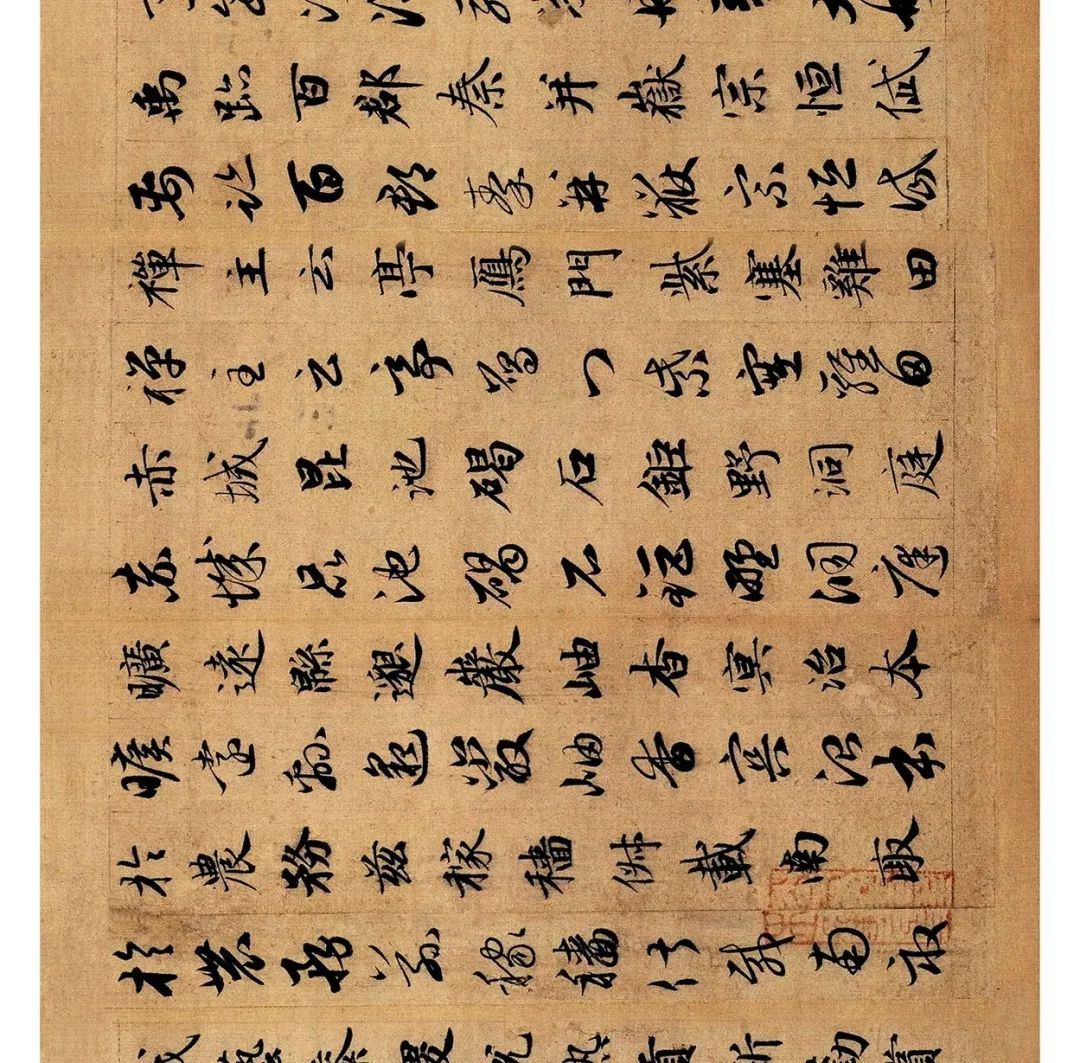 禹跡百郡秦并嶽宗恒岱
禹跡百郡秦并嶽宗恒岱
禪主云亭鴈門紫塞雞田
禪主云亭鴈門紫塞雞田
赤城昆池碣石鉅野洞庭
赤城昆池碣石鉅野洞庭
曠遠緜邈巖岫杳冥治本
曠遠緜邈巖岫杳冥治本
於農務茲稼穡俶載南畝
於農務茲稼穡俶載南畝